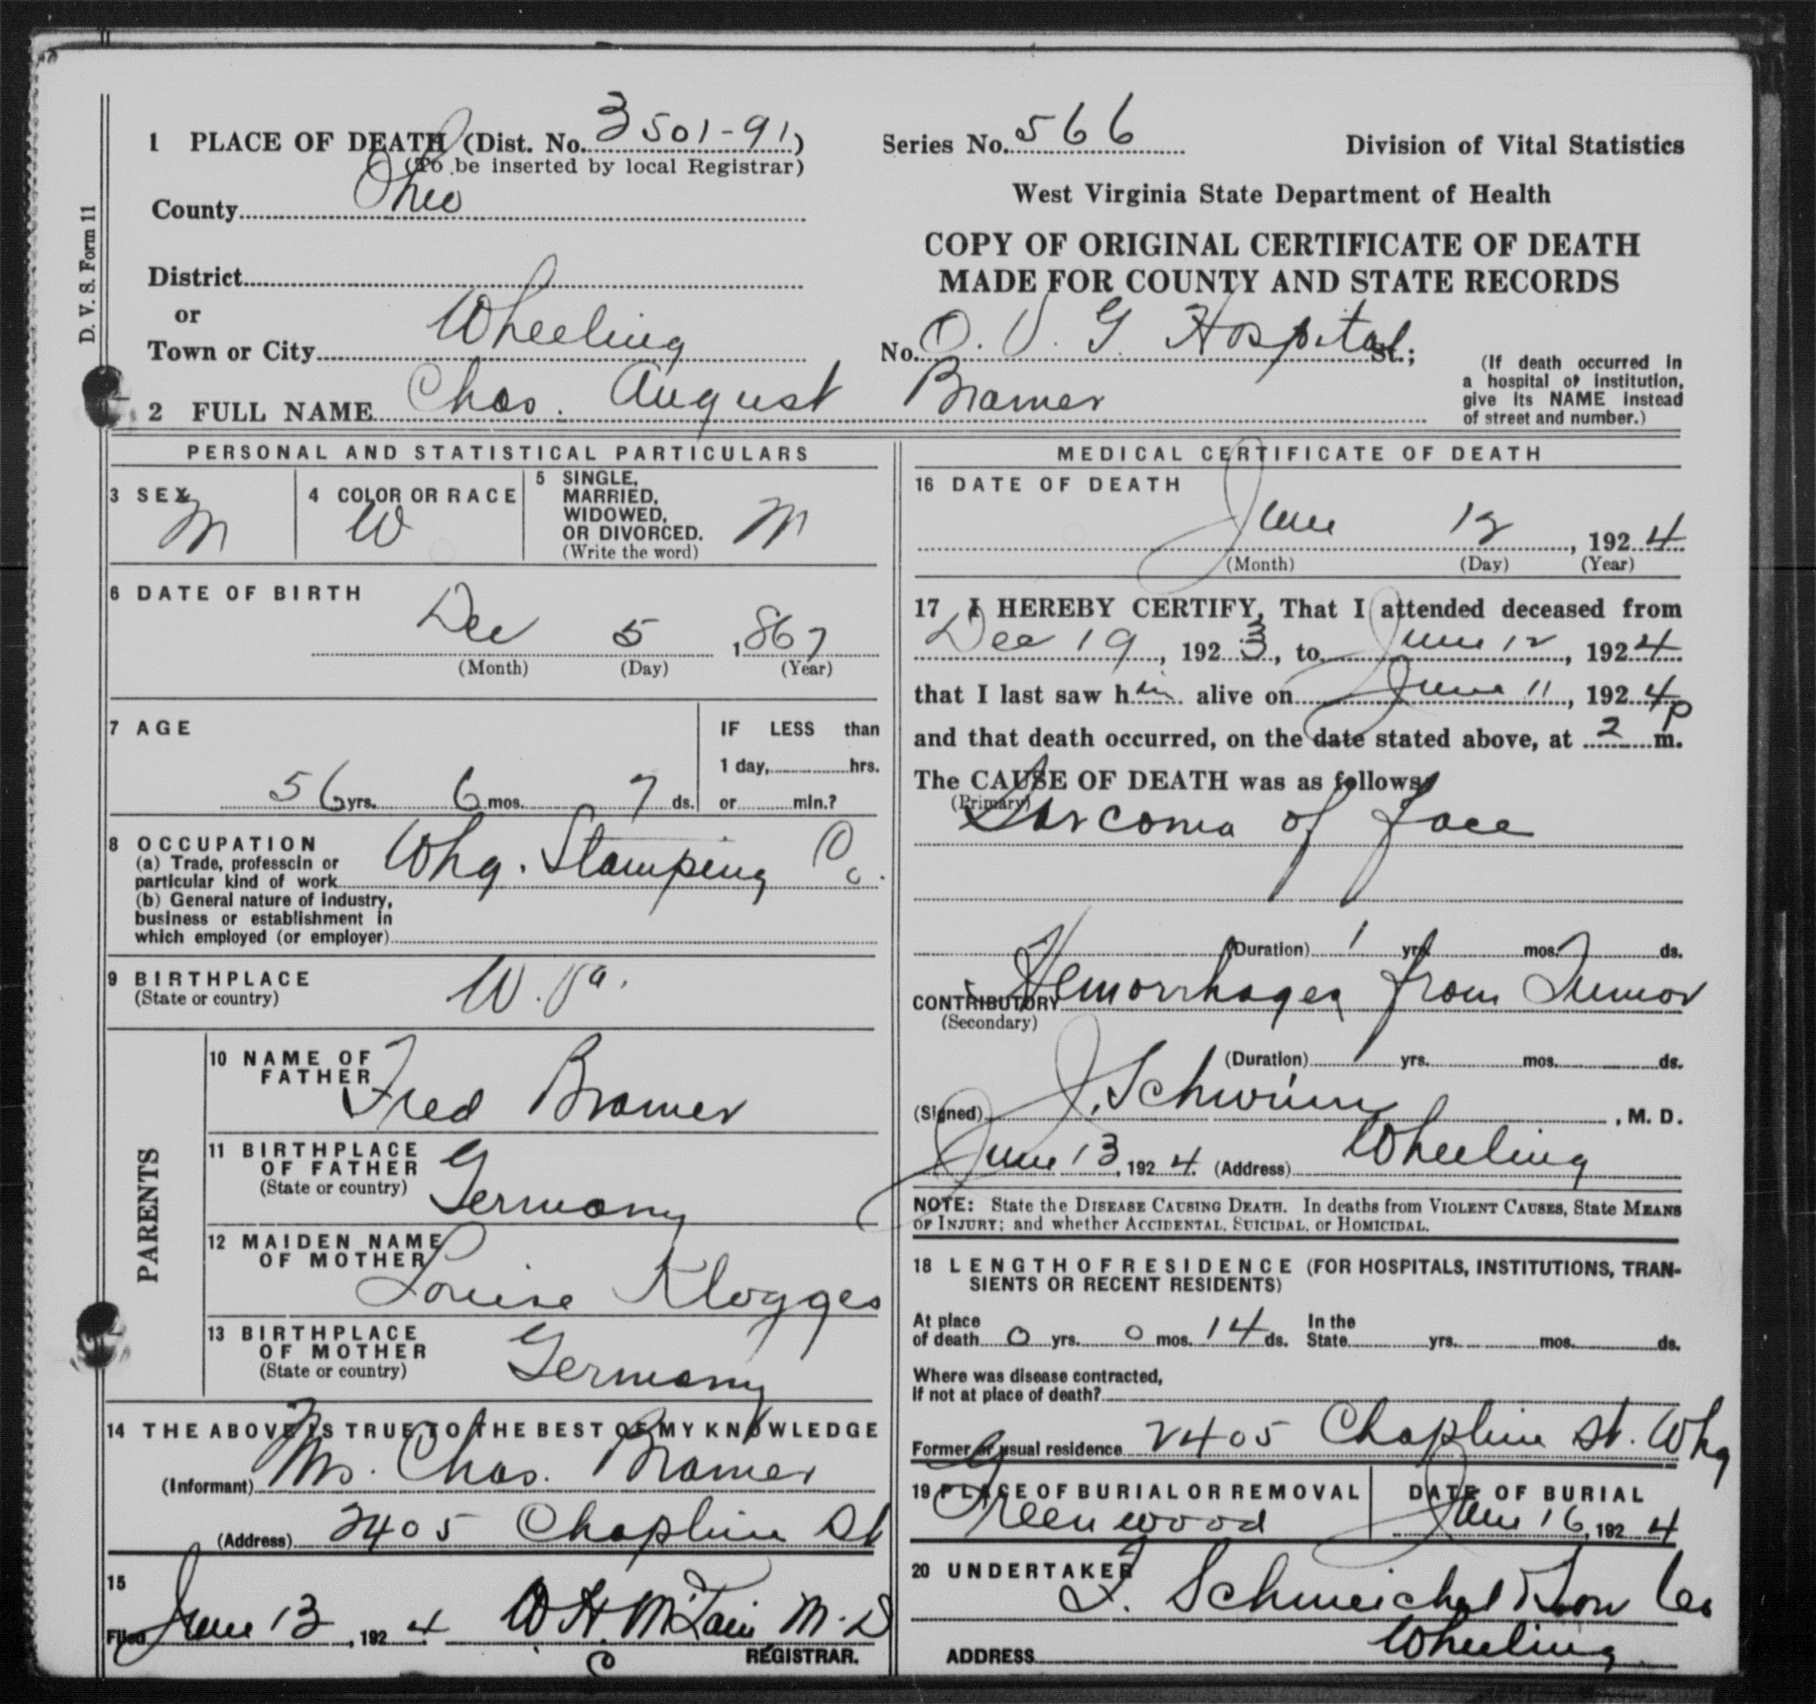 D. V. S. Form 11
1 PLACE OF DEATH (Dist. No. 3501-91)
(To be inserted by local Registrar)
County Ohio
District
or
Town or City Wheeling
Series No. 566
Division of Vital Statistics
West Virginia State Department of Health
COPY OF ORIGINAL CERTIFICATE OF DEATH
MADE FOR COUNTY AND STATE RECORDS
No. O. V. G. Hospital St.;
(If death occurred in
a hospital or institution,
give its NAME instead
of street and number.)
2 FULL NAME Chas. August Bramer
PERSONAL AND STATISTICAL PARTICULARS
3 SEX M
4 COLOR OR RACE W
5 SINGLE,
MARRIED,
WIDOWED,
OR DIVORCED.
(Write the word) M
6 DATE OF BIRTH
Dec 5 , 1867
(Month) (Day) (Year)
7 AGE
56 yrs. 6 mos. 7 ds.
IF LESS than
1 day, hrs.
or min.?
8 OCCUPATION
(a) Trade, professcin or
particular kind of work Whg. Stamping Co.
(b) General nature of industry,
business or establishment in
which employed (or employer)
9 BIRTHPLACE
(State or country) W. Va.
PARENTS
10 NAME OF
FATHER Fred Bramer
11 BIRTHPLACE
OF FATHER
(State or country) Germany
12 MAIDEN NAME
OF MOTHER Louise Klogges
13 BIRTHPLACE
OF MOTHER
(State or country) Germany
14 THE ABOVE IS TRUE TO THE BEST OF MY KNOWLEDGE
(Informant) Mrs. Chas. Bramer
(Address) 2405 Chapline St
15
Filed June 13, 1924 W H. McLain M.D
REGISTRAR.
MEDICAL CERTIFICATE OF DEATH
16 DATE OF DEATH
June 12, 1924
(Month) (Day) (Year)
17 I HEREBY CERTIFY, That I attended deceased from
Dec 19, 1923, to June 12, 1924
that I last saw him alive on June 11, 1924
and that death occurred, on the date stated above, at 2 P m.
The CAUSE OF DEATH was as follows:
(Primary) Sarcoma of face
(Duration) 1 yrs. mos. ds.
CONTRIBUTORY Hemorrhages from Tumor
(Secondary)
(Duration) yrs. mos. ds.
(Signed) J. Schwinn, M. D.
June 13, 1924. (Address) Wheeling
NOTE: State the DISEASE CAUSING DEATH. In deaths from VIOLENT CAUSES, State MEANS
OF INJURY; and whether ACCIDENTAL, SUICIDAL, or HOMICIDAL.
18 LENGTH OF RESIDENCE (FOR HOSPITALS, INSTITUTIONS, TRAN-
SIENTS OR RECENT RESIDENTS)
At place
of death 0 yrs. 0 mos. 14 ds.
In the
State yrs. mos. ds.
Where was disease contracted,
If not at place of death?
Former or usual residence 2405 Chapline St. Whg
19 PLACE OF BURIAL OR REMOVAL
Greenwood
DATE OF BURIAL
June 16, 1924
20 UNDERTAKER
F. Schmeichel & Son Co
ADDRESS Wheeling